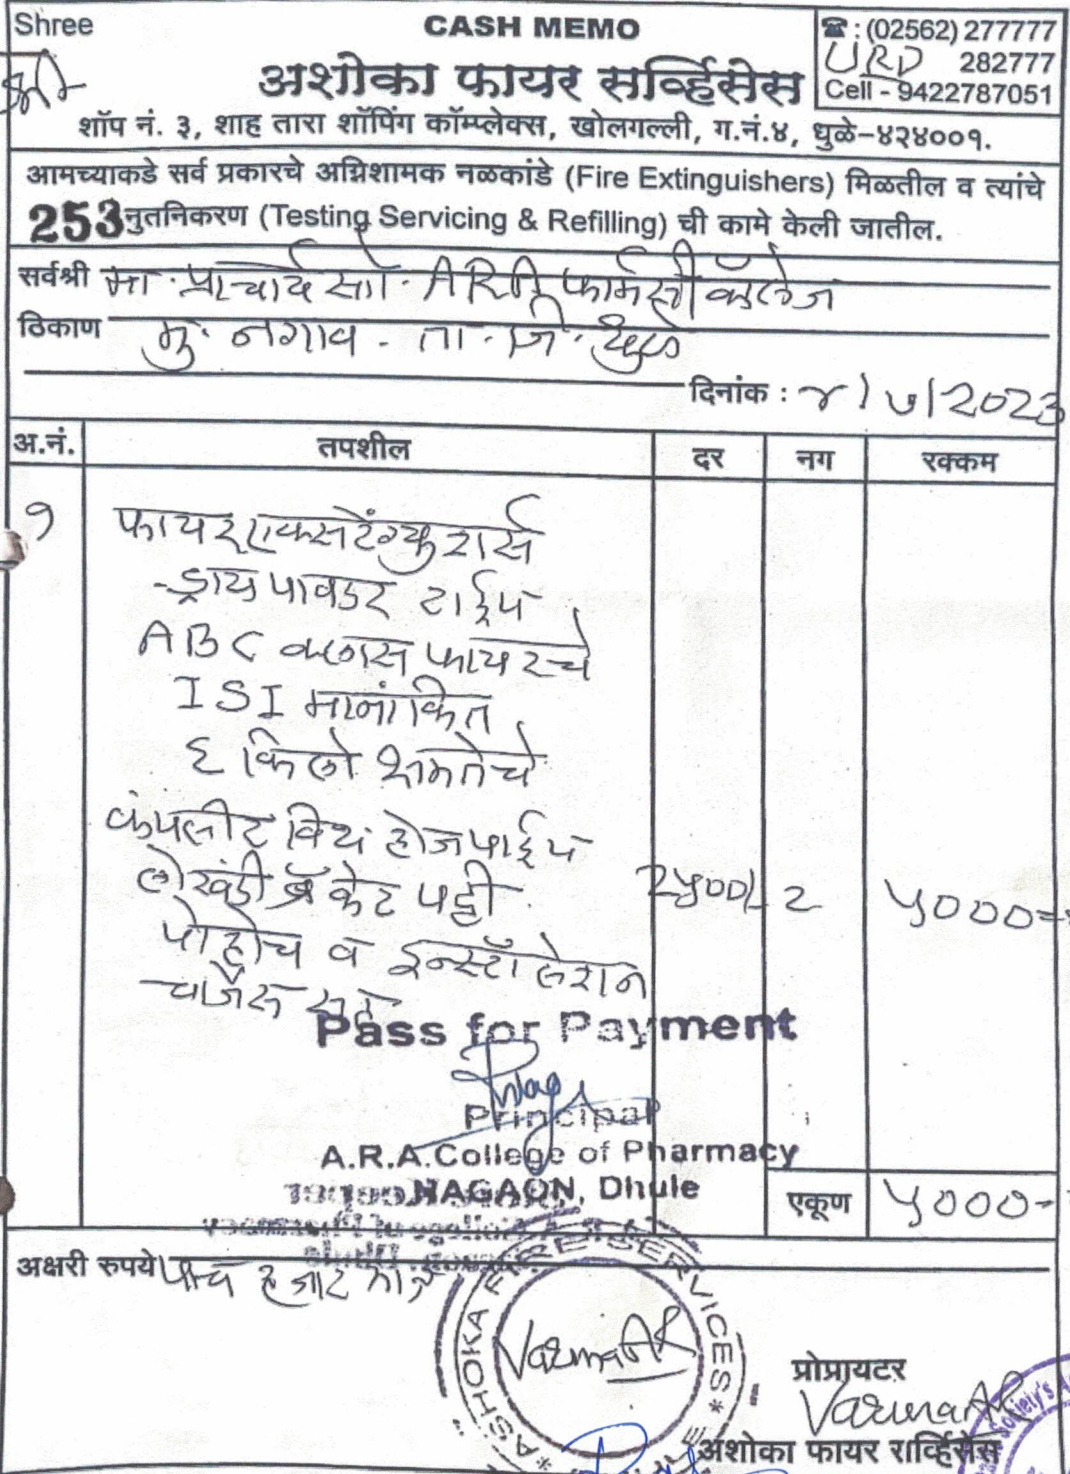 Shree
CASH MEMO
☎ : (02562) 277777
URD 282777
Cell - 9422787051
अशोका फायर सर्व्हिसेस
शॉप नं. ३, शाह तारा शॉपिंग कॉम्प्लेक्स, खोलगल्ली, ग.नं.४, धुळे-४२४००१.
आमच्याकडे सर्व प्रकारचे अग्निशामक नळकांडे (Fire Extinguishers) मिळतील व त्यांचे
253 नुतनिकरण (Testing Servicing & Refilling) ची कामे केली जातील.
सर्वश्री मा. प्राचार्य सो. ARA फार्मसी कॉलेज
ठिकाण मु. नगाव. ता. जि. धुळे
दिनांक : ४/७/2023
अ.नं. तपशील दर नग रक्कम
१ फायर एक्सटेंग्युशर्स
ड्राय पावडर टाईप
ABC क्लास फायरचे
ISI मानांकित
६ किलो क्षमतेचे
कंपलीट विथ होजपाईप
लोखंडी ब्रॅकेट पट्टी 2५००/- 2 ५०००=
पोहोच व इन्स्टॉलेशन
चार्जेस सह
Pass for Payment
Principal
A.R.A.College of Pharmacy
NAGAON, Dhule
एकूण ५०००-
अक्षरी रुपये पाच हजार मात्र
ASHOKA FIRE SERVICES
VarmaAR
प्रोप्रायटर
VarmaAR
अशोका फायर सर्व्हिसेस